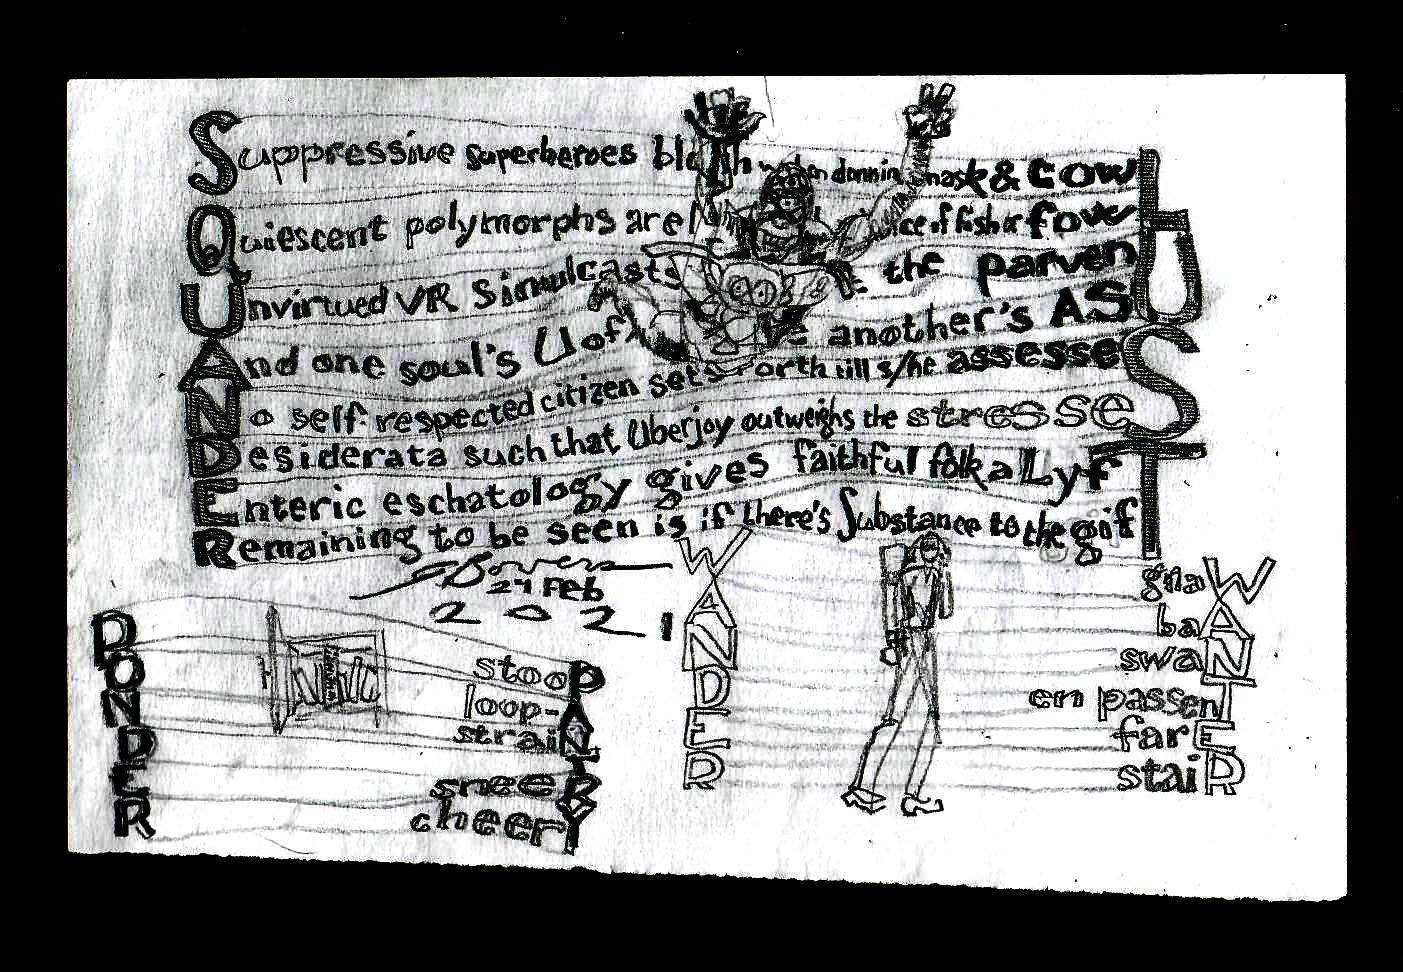 Suppressive superheroes mask & cowL
Quiescent polymorphs are of fish or
Unvirtued VR Simulcasts the parvenU
And one soul's U of another's
No self-respected citizen sets forth till s/he assesseS
Desiderata such that Uberjoy outweighs the stresseS
Enteric eschatology gives faithful folk a LyfT
Remaining to be seen is if there's Substance to the gifT
24 Feb
2021
WANDER
gnaW
baA
swaN
en passenT
farE
staiR
PONDER
stooP
loop-A
straiN
sneeR
cheerY